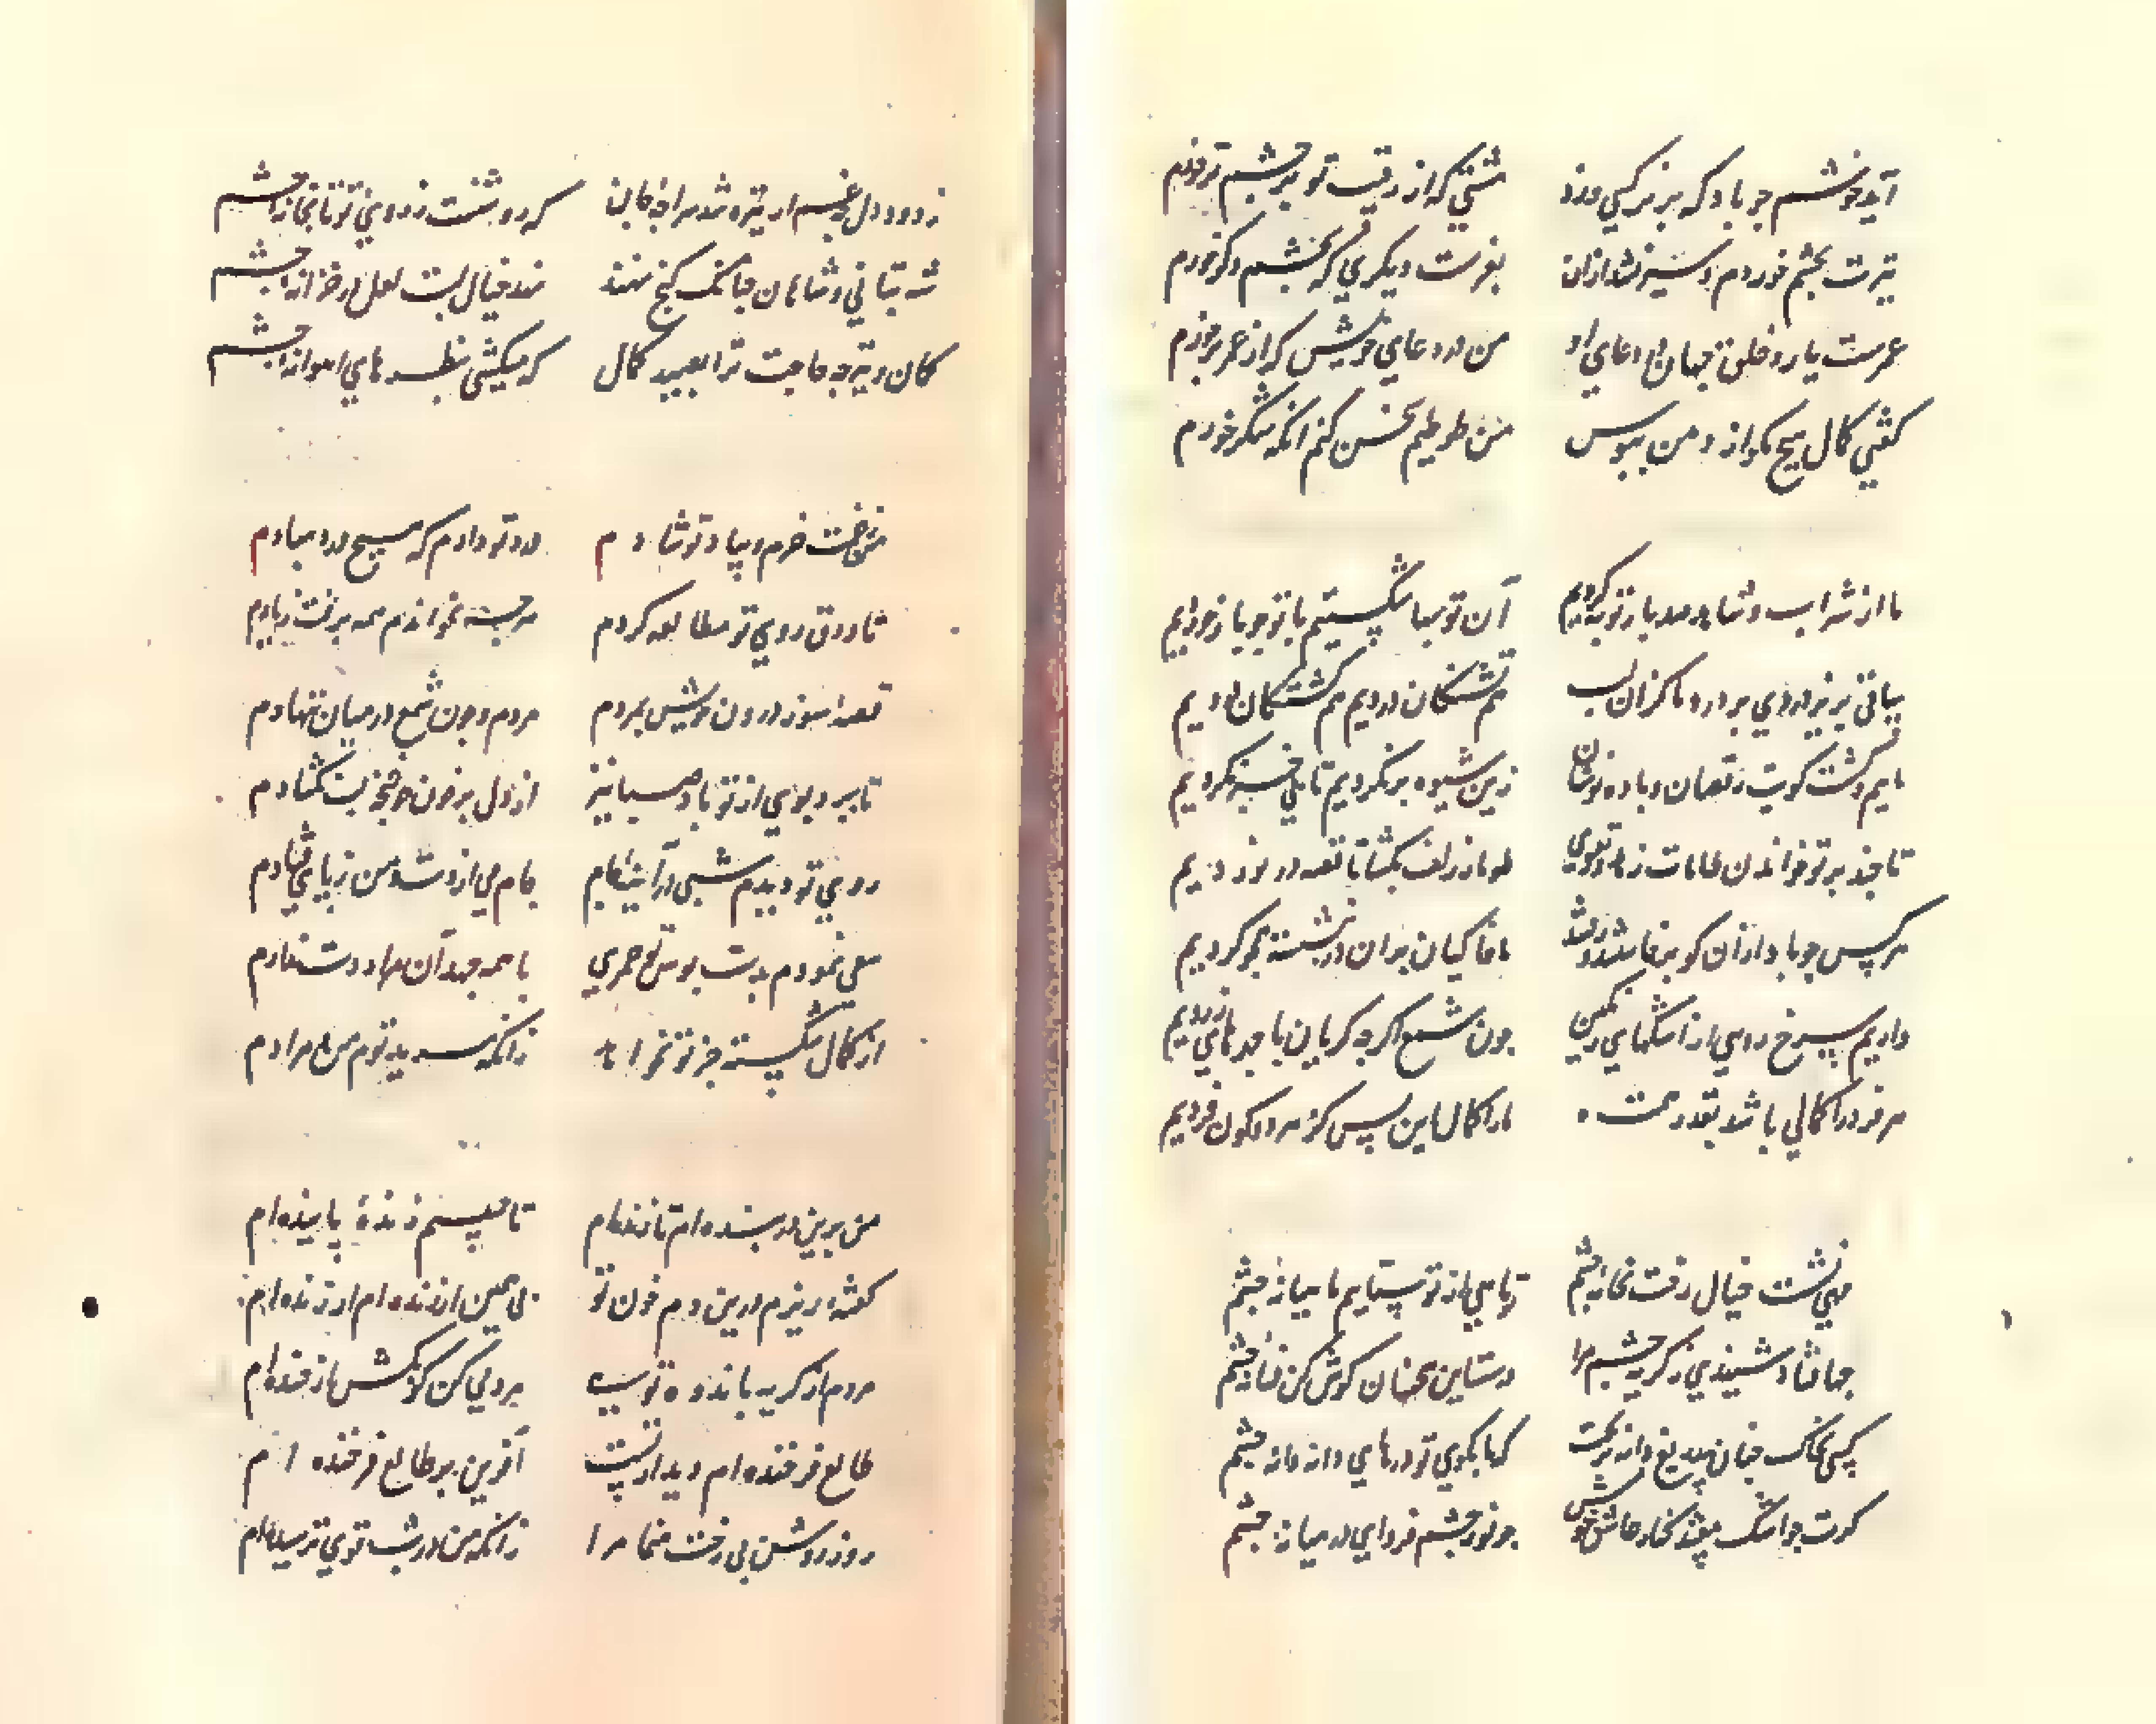 آید خوشم چو باد که بر سر کسی وزد مشتی که از رقیب تو بر چشم تر خورم
تیرت بچشم خوردم و سیر نشد از آن بفرست دیگری که بچشم دگر خورم
عمرست یار و خلق جهان در دعای او من در دعای خویش که از عمر برخورم
گفتی کمال هیچ مگو از دهن ببوس من طوطیم سخن کنم آنگه شکر خورم
ما از شراب و شاهد صد بار توبه کردیم آن توبها شکستیم با توبه باز خوردیم
ساقی بریز دردی بر درد ما کزان لب هم تشنگان دردیم هم کشتگان دردیم
مایم و گشت کویت رقصان و باده نوشان زین شیوه برنگردیم تا خاک خم نگردیم
تا چند بر تو خواندن طامات زهد و تقوی طومار زلف بگشا تا قصه در نوردیم
هر کس چو باد از آن کو برخاستند و رفتند ما خاکیان بر آن در بنشسته همچو گردیم
داریم سرخ رویی از اشکهای رنگین چون شمع اگر چه گریان با چهرهای زردیم
هر فرد را کمالی باشد بقدر همت ما را کمال این بس کز هر دو کون فردیم
مهی نشست خیال رخت بخانه چشم
جهانشاد نشینی ز گریه چشم مرا درست این سخنان گوش کن فسانه چشم
کسی بخاک چنان بی دریغ دانه نریخت که ما بکوی تو درهای دانه دانه چشم
گرت چو اشک بیفتد کنار ماش خوش چو نور چشم فرود آی در میانه چشم
ز دود دل چه غم ار تیره شد سراچه کان که روشنست ز روی تو تابخانه چشم
شه بتانی و شاهان چو بانگ گنج نهند نهد خیال لبت لعل در خزانه چشم
کمان و تیر چه حاجت ترا بصید کمال که میکشی بنظرهای آهوانه چشم
من بغمت خرم و بیاد تو شادم درد تو دارم که هیچ درد مبادم
تا ورق روی تو مطالعه کردم هر چه بخواندم همه برفت ز یادم
قصه سوز درون خویش بمردم مردم و چون شمع در میان ننهادم
تا نبرد بوی از تو باد صبا نیز از دل پر خون چو غنچه لب نگشادم
روی تو دیدم شبی در آینه جام جام می از دست و من ز پای فتادم
سعی نمودم بدست بوس تو عمری با همه جهد آن مراد دست ندادم
از کمال شکسته جز تو نخواهد زانکه مرید توم من و مرادم
من برین در بنده ام تا زنده ام تا چنینم زنده پاینده ام
گفته ریزم درین دم خون تو بی همین ارزنده ام ار زنده ام
مردم از گریه باندوه تو لب مردمی کن گو بکش از خنده ام
طالع فرخنده ام دیدار تست آفرین بر طالع فرخنده ام
روز روشن بی رخت منما مرا زانکه من در شب قوی ترسیده ام